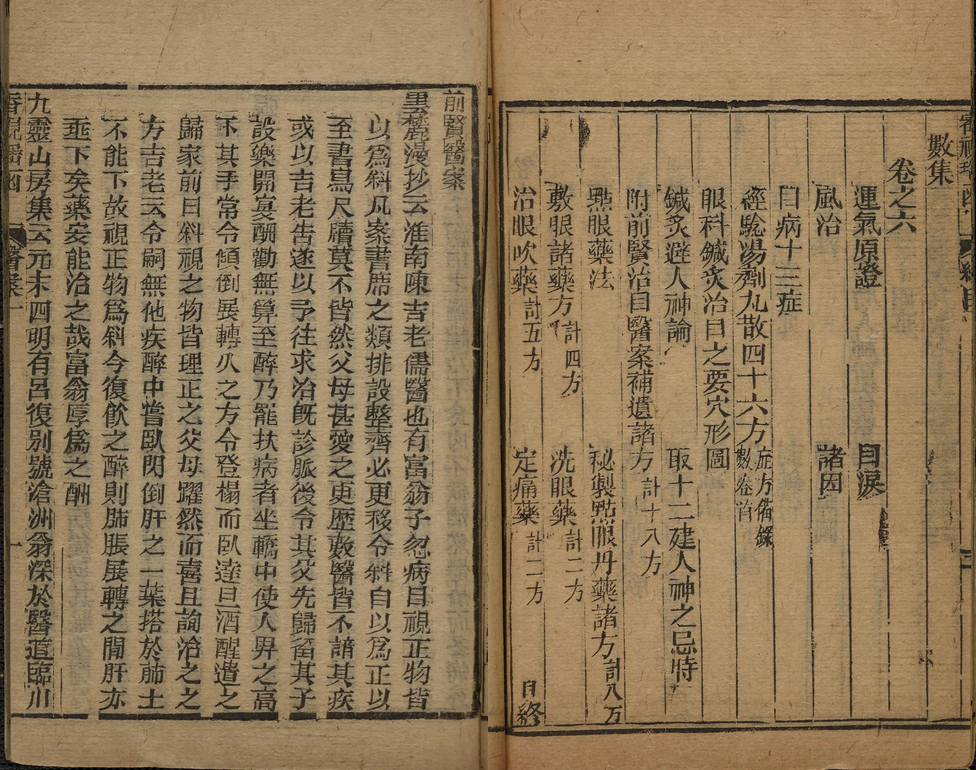 數集
卷之六
運氣原證 目淚
風治 諸因
目病十三症
經驗湯劑九散四十六方 症方備錄數卷首
眼科鍼炙治目之要穴形圖
鍼炙避人神論 取十二建人神之忌時
附前賢治目醫案補遺諸方 計十八方
㸃眼藥法 秘製㸃眼丹藥諸方 計八方
敷眼諸藥方 計四方 洗眼藥 計二方
治眼吹藥 計五方 定痛藥 計二方 目終
前賢醫案
雲麓漫抄云淮南陳吉老儒醫也有富翁子忽病目視正物皆
以爲斜凡案書席之類排設整齊必更移令斜自以爲正以
至書寫尺牘莫不皆然父母甚愛之更歷數醫皆不諳其疾
或以吉老告遂以子往求治旣診脈後令其父先歸畱其子
設樂開宴酬勸無算至醉乃罷扶病者坐轎中使人舁之高
下其手常令傾倒展轉久之方令登榻而臥達旦酒醒遣之
歸家前日斜視之物皆理正之父母躍然而喜且詢治之之
方吉老云令嗣無他疾醉中嘗臥閃倒肝之一葉搭於肺上
不能下故視正物爲斜今復飲之醉則肺脹展轉之間肝亦
垂下矣藥安能治之哉富翁厚爲之酬
九靈山房集云元末四明有呂復別號滄洲翁深於醫道臨川
醫案 一